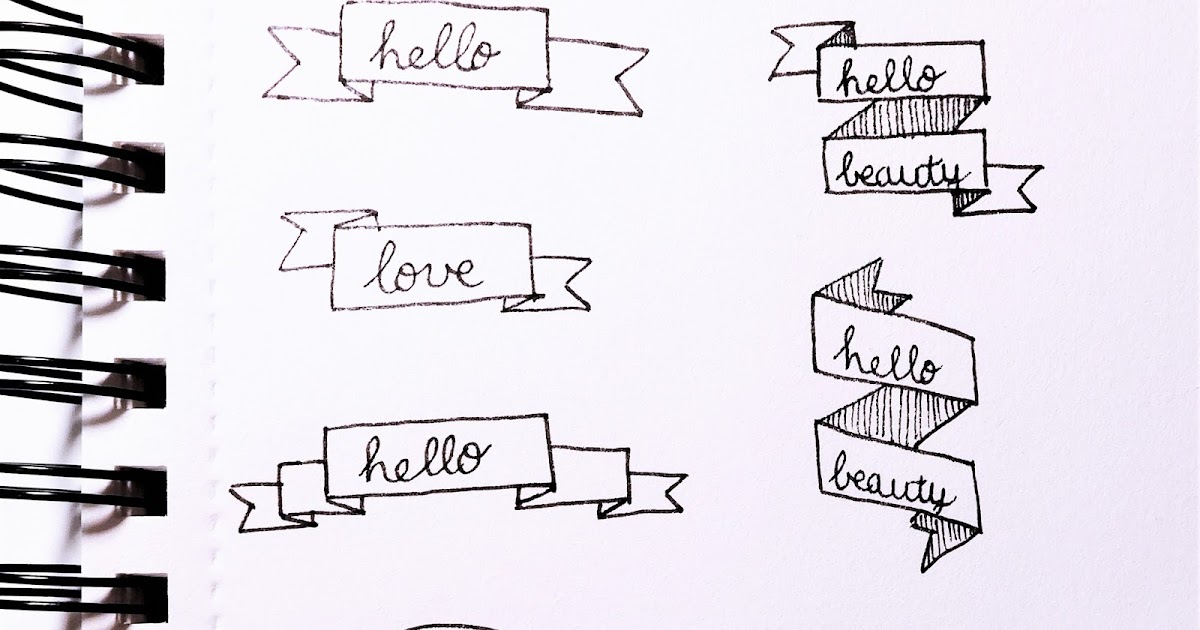 hello
love
hello
hello
beauty
hello
beauty